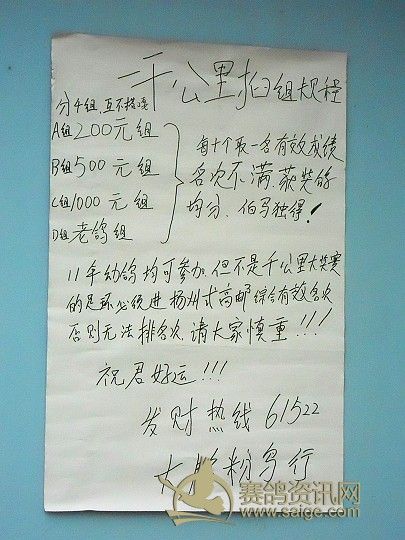 一千公里指组规程
分4组,互不接受
A组200元组
B组500元组
C组1000元组
D组老鸽组
每十个取一名有效成绩
名次不满,获奖鸽
均分、伯马独得!
11年幼鸽均可参加,但不是千公里大奖赛
的足环必须进扬州或高邮综合有效名次
否则无法排名次,请大家慎重!!!
祝君好运!!!
发财热线61522
大
行
赛鸽资讯网
www.saige.com